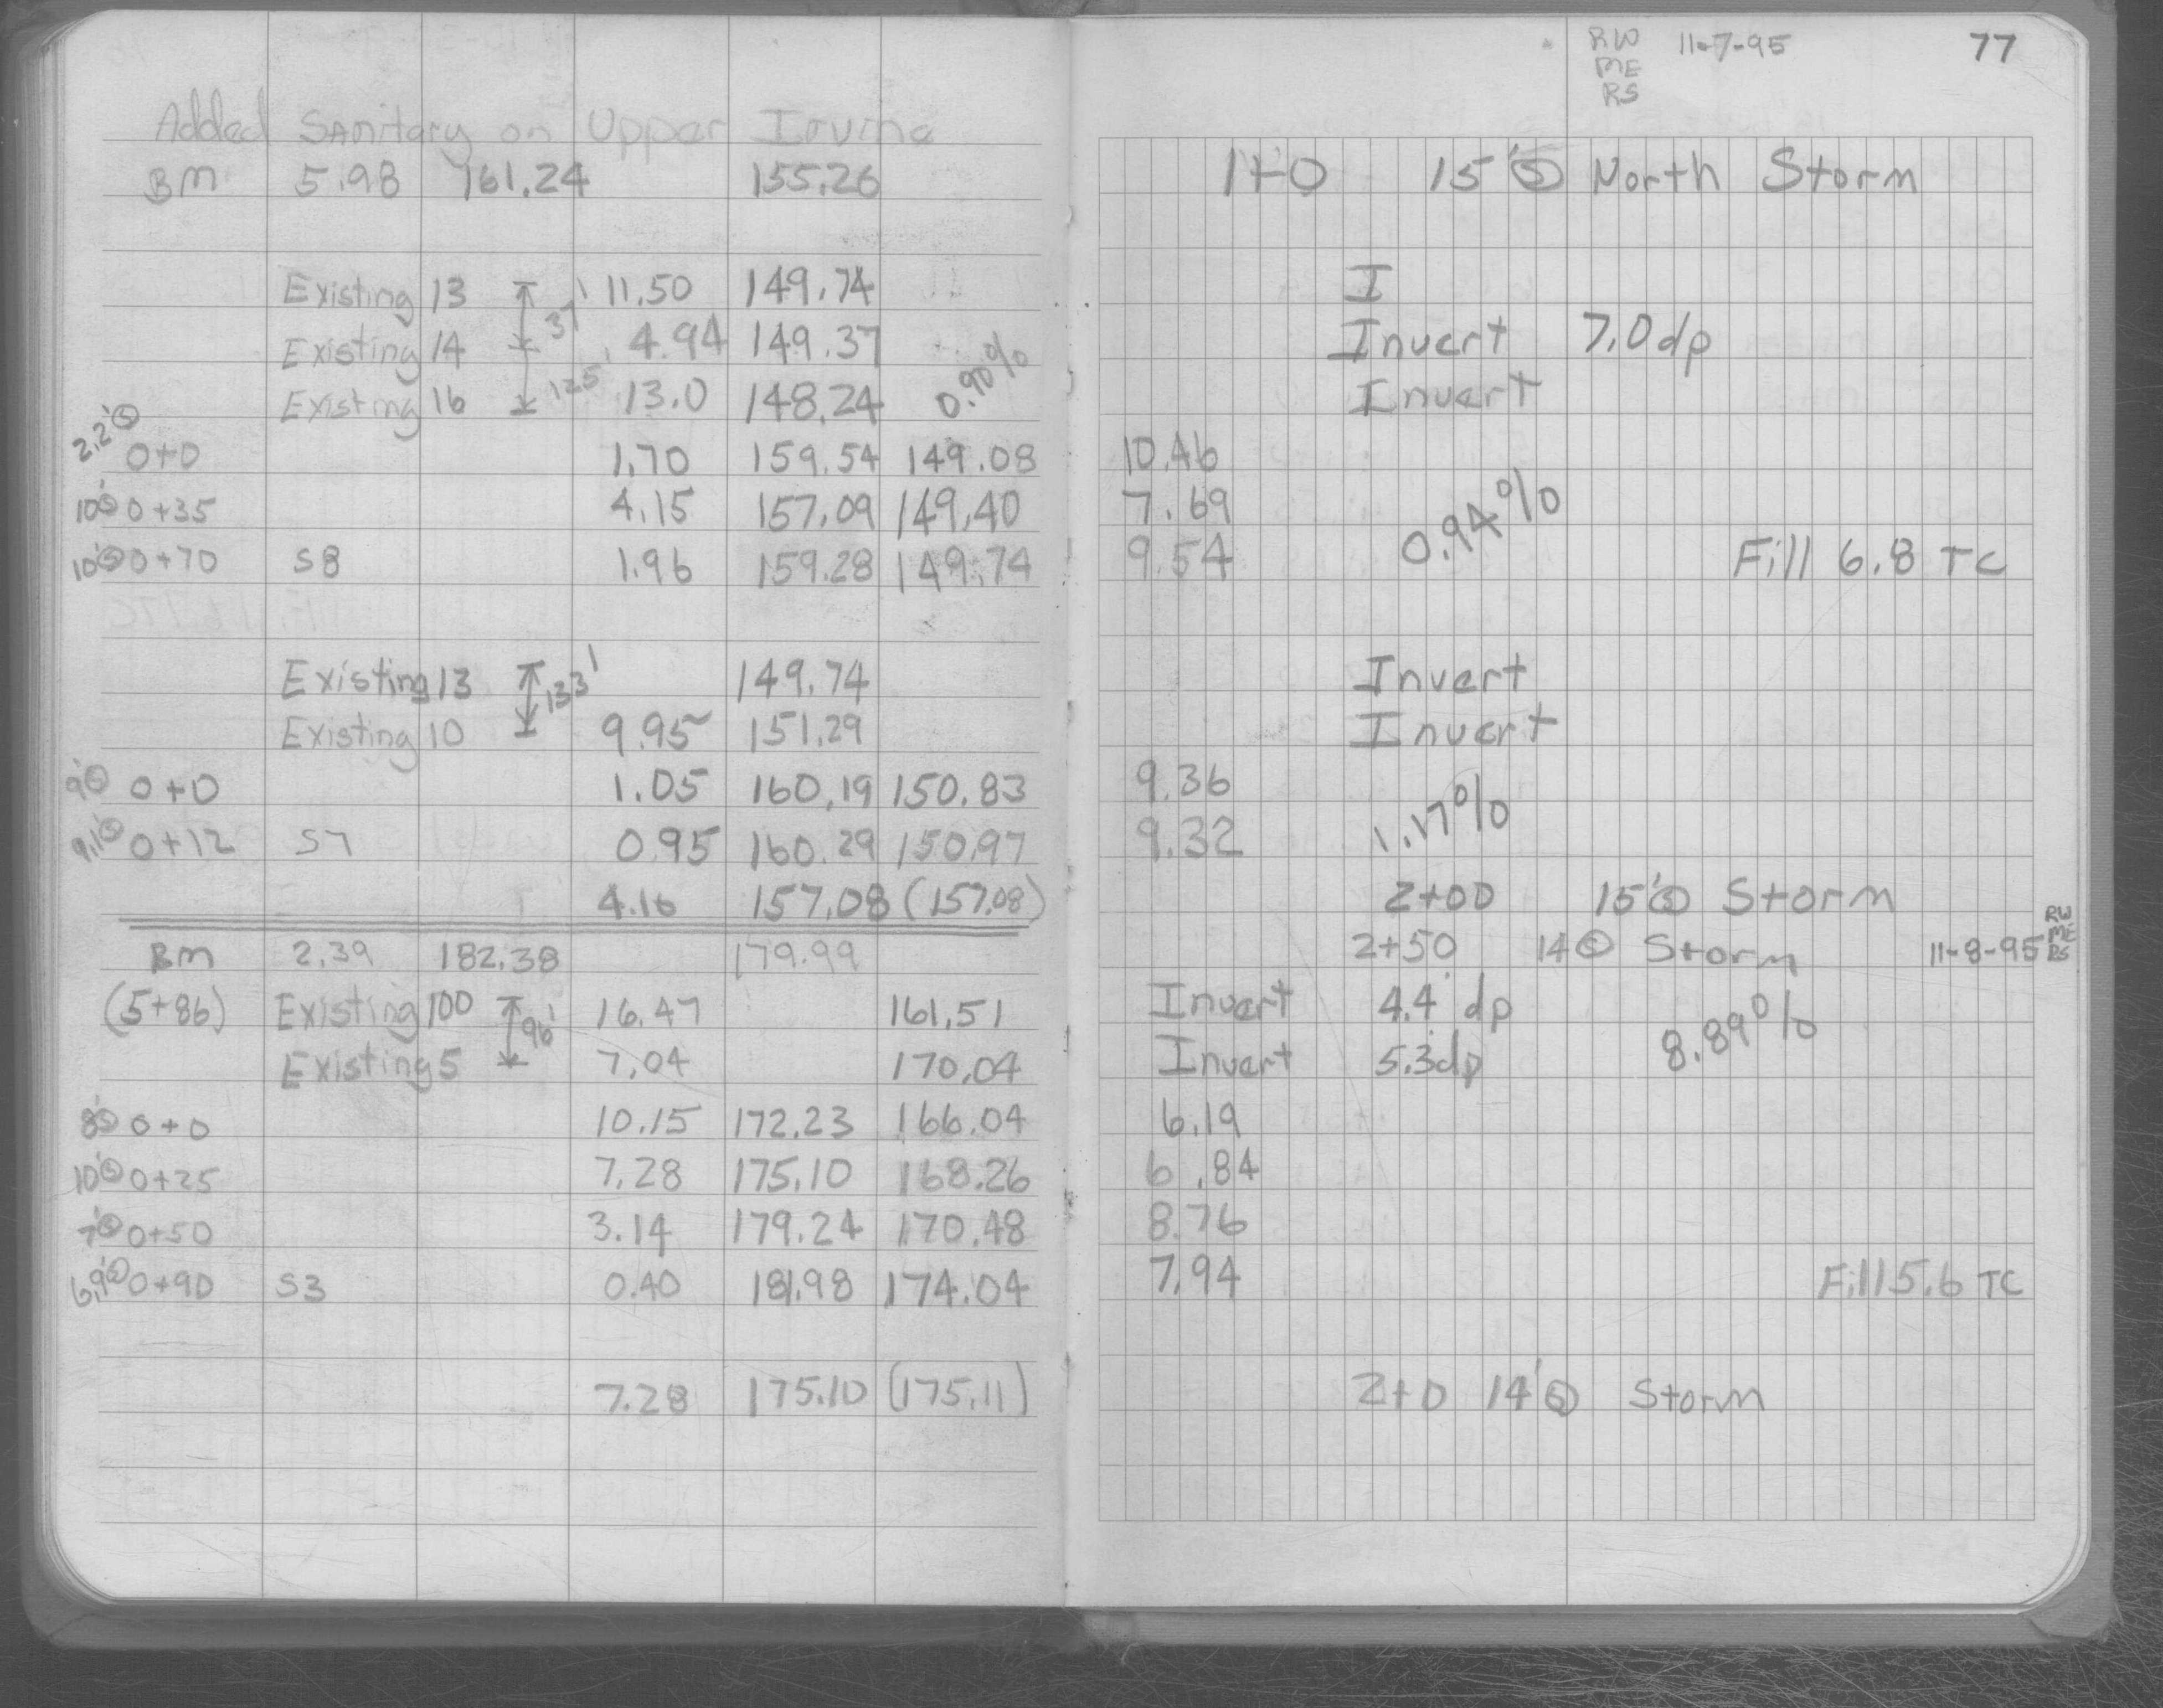 RW 11-7-95 77
ME
RS
Added Sanitary on Upper Irvine
BM 5.98 161.24 155.26 1+0 15' North Storm
Existing 13 11.50 149.74 I
37'
Existing 14 4.94 149.37 Invert 7.0 dp
125'
Existing 16 13.0 148.24 0.90% Invert
2.2' 0+0 1.70 159.54 149.08 10.46
10' 0+35 4.15 157.09 149.40 7.69 0.94%
10' 0+70 S8 1.96 159.28 149.74 9.54 Fill 6.8 TC
Existing 13 133' 149.74 Invert
Existing 10 9.95 151.29 Invert
9' 0+0 1.05 160.19 150.83 9.36
9.1' 0+12 S7 0.95 160.29 150.97 9.32 1.17%
4.16 157.08 (157.08) 2+00 15' Storm
BM 2.39 182.38 179.99 2+50 14 Storm 11-8-95 RW ME RS
(5+86) Existing 100 96' 16.47 161.51 Invert 4.4 dp
Existing 5 7.04 170.04 Invert 5.3 dp 8.89%
8' 0+0 10.15 172.23 166.04 6.19
10' 0+25 7.28 175.10 168.26 6.84
7' 0+50 3.14 179.24 170.48 8.76
6.9' 0+90 S3 0.40 181.98 174.04 7.94 Fill 5.6 TC
7.28 175.10 (175.11) 2+0 14' Storm